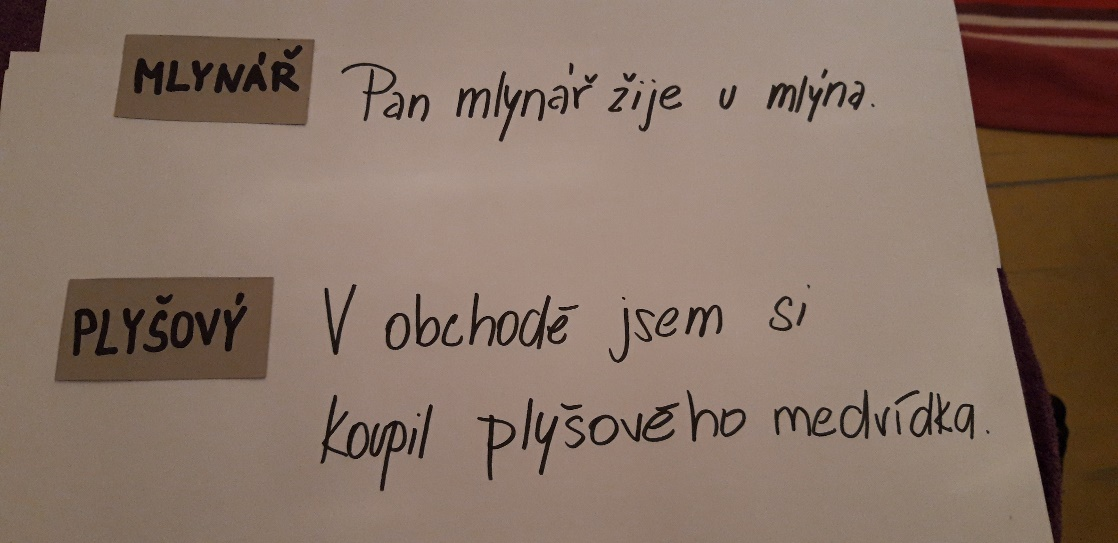 MLYNÁŘ Pan mlynář žije u mlýna.
PLYŠOVÝ V obchodě jsem si
koupil plyšového medvídka.